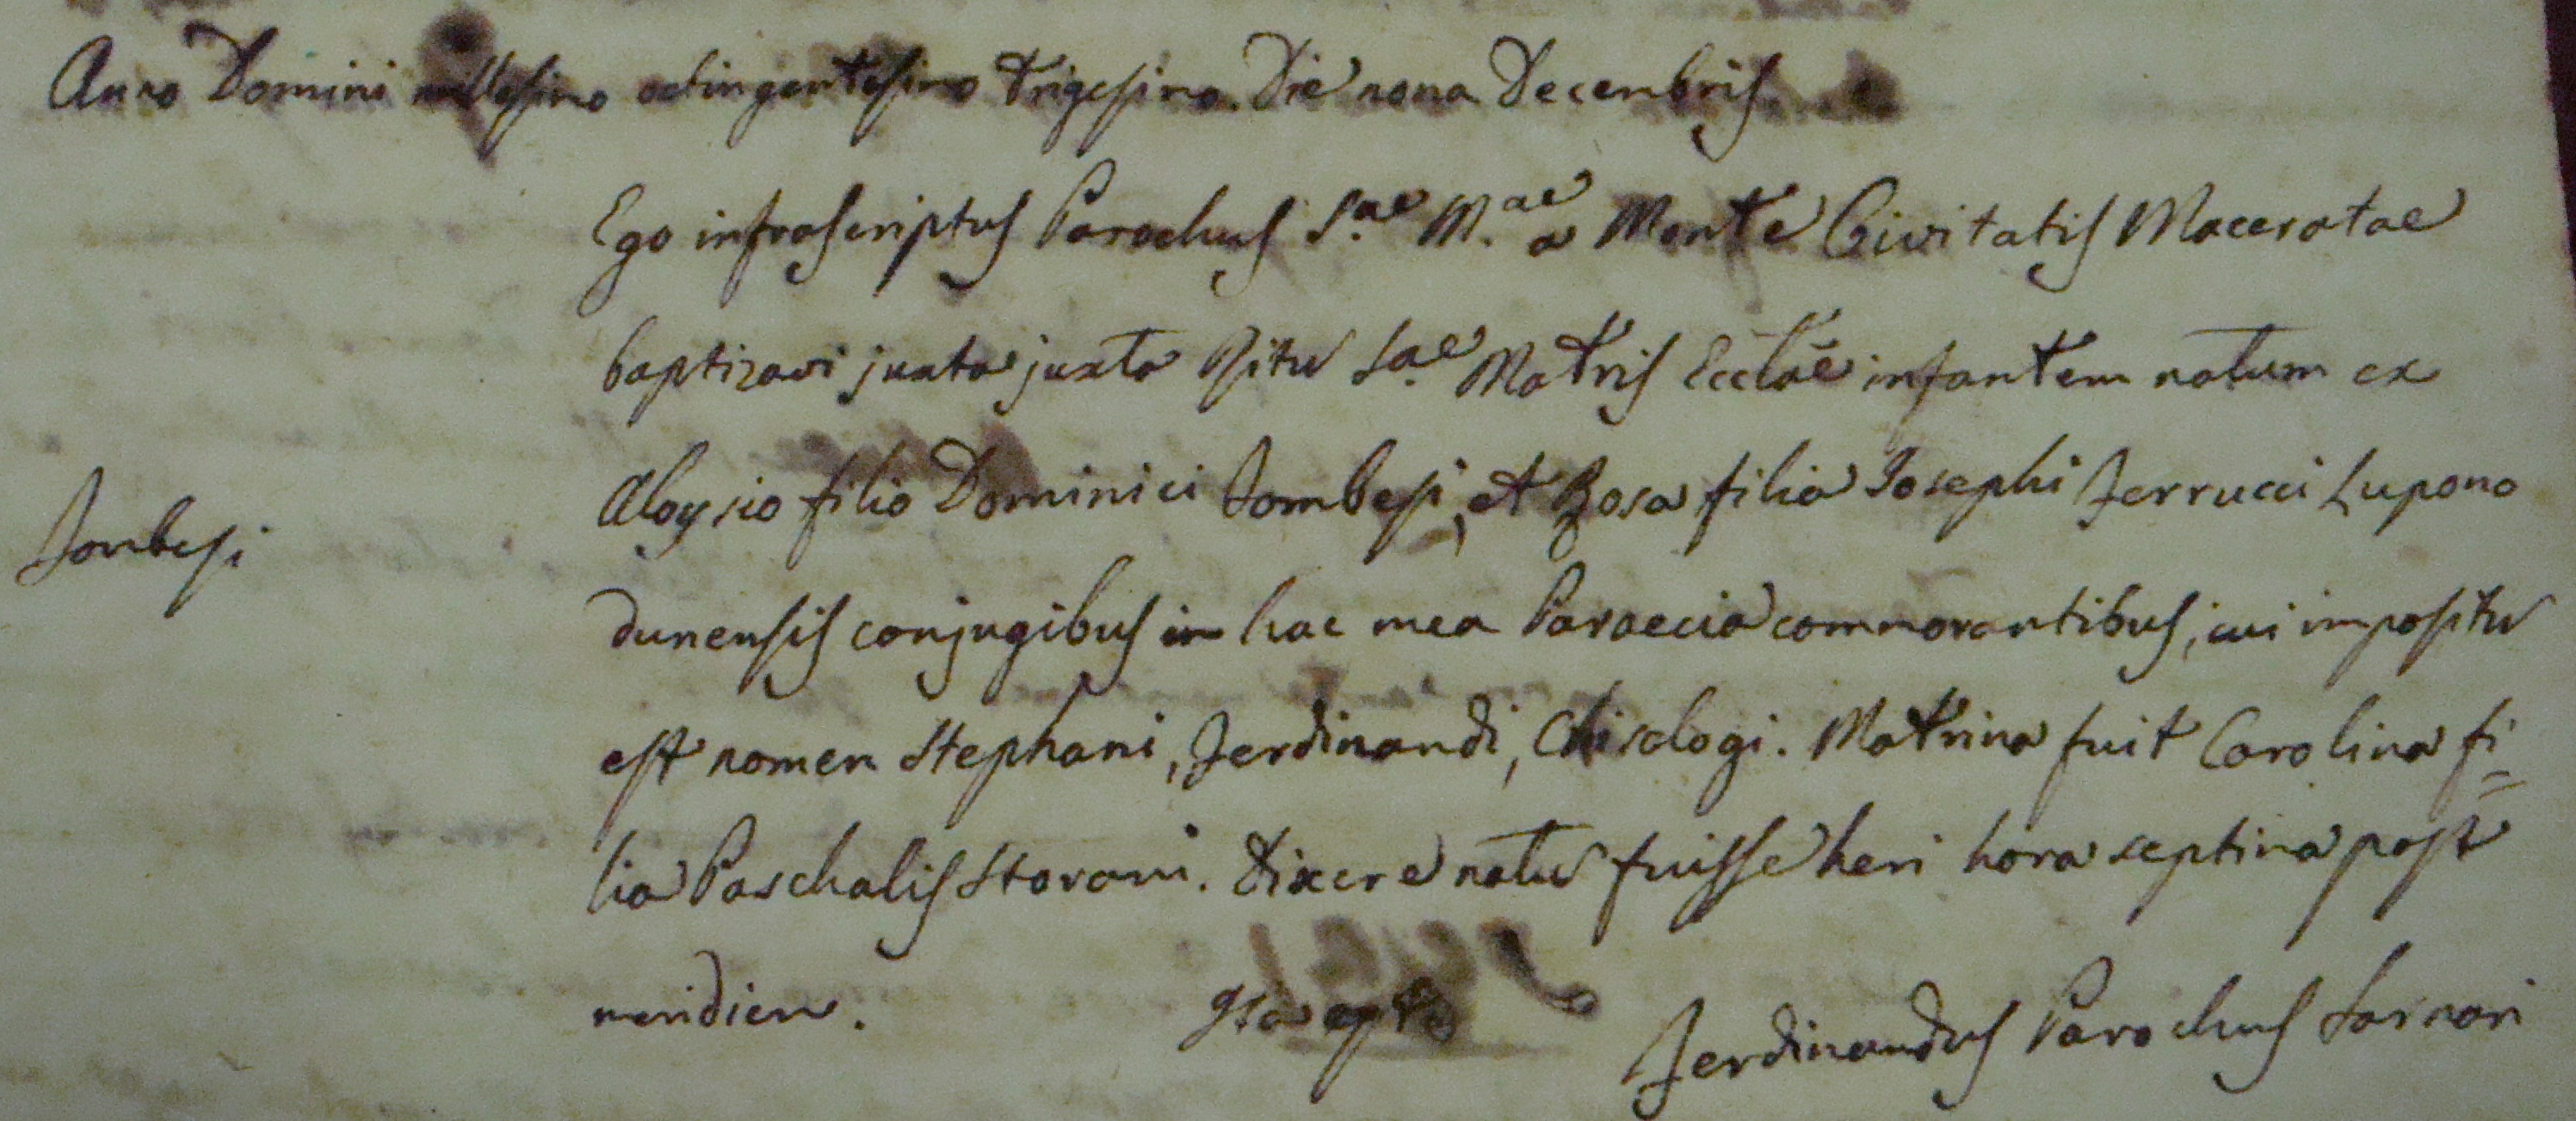 Anno Domini millesimo octingentesimo trigesimo. Die nona Decembris
Ego infrascriptus Parochus S.ae M.ae a Monte Civitatis Maceratae
baptizavi juxta juxta Ritu S.ae Matris Ecclae infantem natum ex
Aloysio filio Dominici Tombesi, et Rosa filia Josephi Ferrucci Lupono
Tombesi
dunensis conjugibus in hac mea Paraecia commorantibus, cui impositu
est nomen Stephani, Ferdinandi, Crisologi. Matrina fuit Carolina fi=
lia Paschalis Storani. Dixere natu fuisse heri hora septima post
meridiem. Ita est Ferdinandus Parochus Sarnari